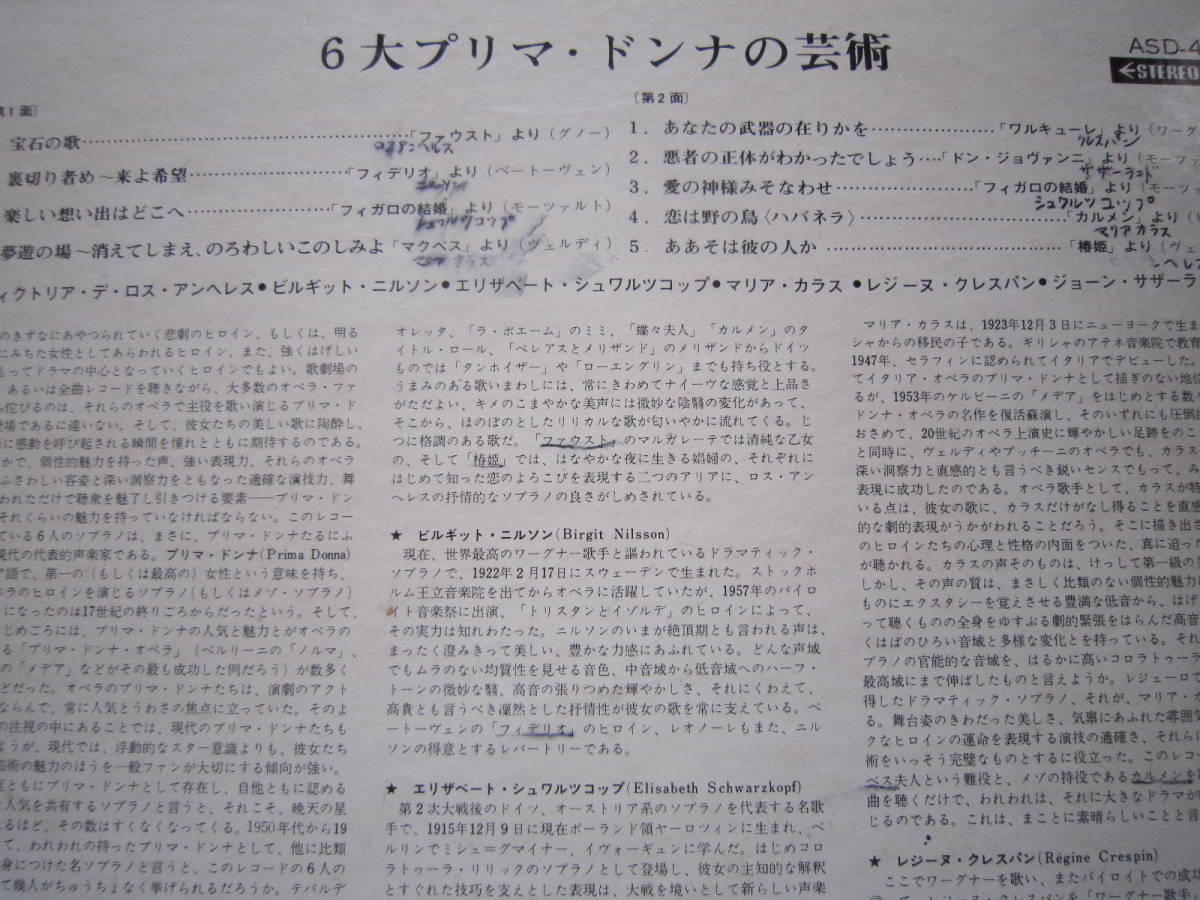 6大プリマ・ドンナの芸術
ASD-4
STEREO
第1面〕
宝石の歌……「ファウスト」より(グノー)
ロスアンヘレス
裏切り者め〜来よ希望……「フィデリオ」より(ベートーヴェン)
ニルソン
楽しい想い出はどこへ……「フィガロの結婚」より(モーツァルト)
シュワルツコップ
夢遊の場〜消えてしまえ、のろわしいこのしみよ「マクベス」より(ヴェルディ)
カラス
〔第2面〕
1. あなたの武器の在りかを……「ワルキューレ」より(ワーグ
クレスパン
2. 悪者の正体がわかったでしょう…「ドン・ジョヴァンニ」より(モーツ
サザーランド
3. 愛の神様みそなわせ……「フィガロの結婚」より(モーツ
シュワルツコップ
4. 恋は野の鳥〈ハバネラ〉……「カルメン」より(
マリアカラス
5. ああそは彼の人か……「椿姫」より(ヴェ
ィクトリア・デ・ロス・アンヘレス●ビルギット・ニルソン●エリザベート・シュワルツコップ●マリア・カラス●レジーヌ・クレスパン●ジョーン・サザーラ
のきずなにあやつられていく悲劇のヒロイン、もしくは、明る
にみちた女性としてあらわれるヒロイン、また、強くはげしい
もってドラマの中心となっていくヒロインでもよい。歌劇場の
あるいは全曲レコードを聴きながら、大多数のオペラ・ファ
ち侘びるのは、それらのオペラで主役を歌い演じるプリマ・ド
登場であるに違いない。そして、彼女たちの美しい歌に陶酔し、
に感動を呼び起される瞬間を憧れとともに期待するのである。
かで、個性的魅力を持った声、強い表現力、それらのオペラ
ふさわしい容姿と深い洞察力をともなった適確な演技力、舞
われただけで聴衆を魅了し引きつける要素——プリマ・ドン
それくらいの魅力を持っていなければならない。このレコー
ている6人のソプラノは、まさに、プリマ・ドンナたるにふ
現代の代表的声楽家である。プリマ・ドンナ(Prima Donna)
ア語で、第一の(もしくは最高の)女性という意味を持ち、
ペラのヒロインを演じるソプラノ(もしくはメゾ・ソプラノ)
になったのは17世紀の終りごろからだったという。そして、
じめごろには、プリマ・ドンナの人気と魅力とがオペラの
る「プリマ・ドンナ・オペラ」(ベルリーニの「ノルマ」、
の「メデア」などがその最も成功した例だろう)が数多く
どだった。オペラのプリマ・ドンナたちは、演劇のアクト
ならんで、常に人気とうわさの焦点に立っていた。そのよ
の注視の中にあることでは、現代のプリマ・ドンナたちも
ようが、現代では、浮動的なスター意識よりも、彼女たち
芸術の魅力のほうを一般ファンが大切にする傾向が強い。
ともにプリマ・ドンナとして存在し、自他ともに認める
と人気を共有するソプラノと言うと、それこそ、暁天の星
るほど、その数はすくなくなってくる。1950年代から19
て、われわれの持ったプリマ・ドンナとして、他に比類
身につけた名ソプラノと言うと、このレコードの6人の
て幾人がちゅうちょなく挙げられるだろうか。テバルデ
オレッタ、「ラ・ボエーム」のミミ、「蝶々夫人」「カルメン」のタ
イトル・ロール、「ペレアスとメリザンド」のメリザンドからドイツ
ものでは「タンホイザー」や「ローエングリン」までも持ち役とする。
うまみのある歌いまわしには、常にきわめてナイーヴな感覚と上品さ
がただよい、キメのこまやかな美声には微妙な陰翳の変化があって、
そこから、ほのぼのとしたリリカルな歌が匂いやかに流れてくる。じ
つに格調のある歌だ。「ファウスト」のマルガレーテでは清純な乙女
の、そして「椿姫」では、はなやかな夜に生きる娼婦の、それぞれに
はじめて知った恋のよろこびを表現する二つのアリアに、ロス・アン
ヘレスの抒情的なソプラノの良さがしめされている。
★ ビルギット・ニルソン(Birgit Nilsson)
現在、世界最高のワーグナー歌手と謳われているドラマティック・
ソプラノで、1922年2月17日にスウェーデンで生まれた。ストックホ
ルム王立音楽院を出てからオペラに活躍していたが、1957年のバイロ
イト音楽祭に出演、「トリスタンとイゾルデ」のヒロインによって、
その実力は知れわたった。ニルソンのいまが絶頂期とも言われる声は、
まったく澄みきって美しい、豊かな力感にあふれている。どんな声域
でもムラのない均質性を見せる音色、中音域から低音域へのハーフ・
トーンの微妙な翳、高音の張りつめた輝やかしさ、それにくわえて、
高貴とも言うべき凜然とした抒情性が彼女の歌を常に支えている。ベ
ートーヴェンの「フィデリオ」のヒロイン、レオノーレもまた、ニル
ソンの得意とするレパートリーである。
★ エリザベート・シュワルツコップ(Elisabeth Schwarzkopf)
第2次大戦後のドイツ、オーストリア系のソプラノを代表する名歌
手で、1915年12月9日に現在ポーランド領ヤーロツィンに生まれ、ベ
ルリンでミシュ=グマイナー、イヴォーギュンに学んだ。はじめコロ
ラトゥーラ・リリックのソプラノとして登場し、彼女の主知的な解釈
とすぐれた技巧を支えとした表現は、大戦を境いとして新らしい声楽
マリア・カラスは、1923年12月3日にニューヨークで生ま
シャからの移民の子である。ギリシャのアテネ音楽院で教育
1947年、セラフィンに認められてイタリアでデビューした。
てイタリア・オペラのプリマ・ドンナとして揺ぎのない地位
るが、1953年のケルビーニの「メデア」をはじめとする数々
ドンナ・オペラの名作を復活蘇演し、そのいずれにも圧倒
おさめて、20世紀のオペラ上演史に輝やかしい足跡をのこ
と同時に、ヴェルディやプッチーニのオペラでも、カラス
深い洞察力と直感的とも言うべき鋭いセンスでもって、み
表現に成功したのである。オペラ歌手として、カラスが特
いる点は、彼女の歌に、カラスだけがなし得ることを直感
的な劇的表現がうかがわれることだろう。そこに描き出さ
のヒロインたちの心理と性格の内面をついた、真に迫った
が聴かれる。カラスの声そのものは、けっして第一級の美
しかし、その声の質は、まさしく比類のない個性的魅力
ものにエクスタシーを覚えさせる豊満な低音から、はげ
って聴くものの全身をゆすぶる劇的緊張をはらんだ高音
くはばのひろい音域と多様な変化とを持っている。それ
プラノの官能的な音域を、はるかに高いコロラトゥーラ
最高域にまで伸ばしたものと言えようか。レジェーロで
得したドラマティック・ソプラノ、それが、マリア・
る。舞台姿のきわだった美しさ、気稟にあふれた雰囲
クなヒロインの運命を表現する演技の適確さ、それらに
術をいっそう完璧なものとするに役立った。このレコ
ベス夫人という難役と、メゾの持役であるカルメンを
曲を聴くだけで、われわれは、それに大きなドラマが
じるのである。これは、まことに素晴らしいことと言
★ レジーヌ・クレスパン(Régine Crespin)
ここでワーグナーを歌い、またバイロイトでの成功